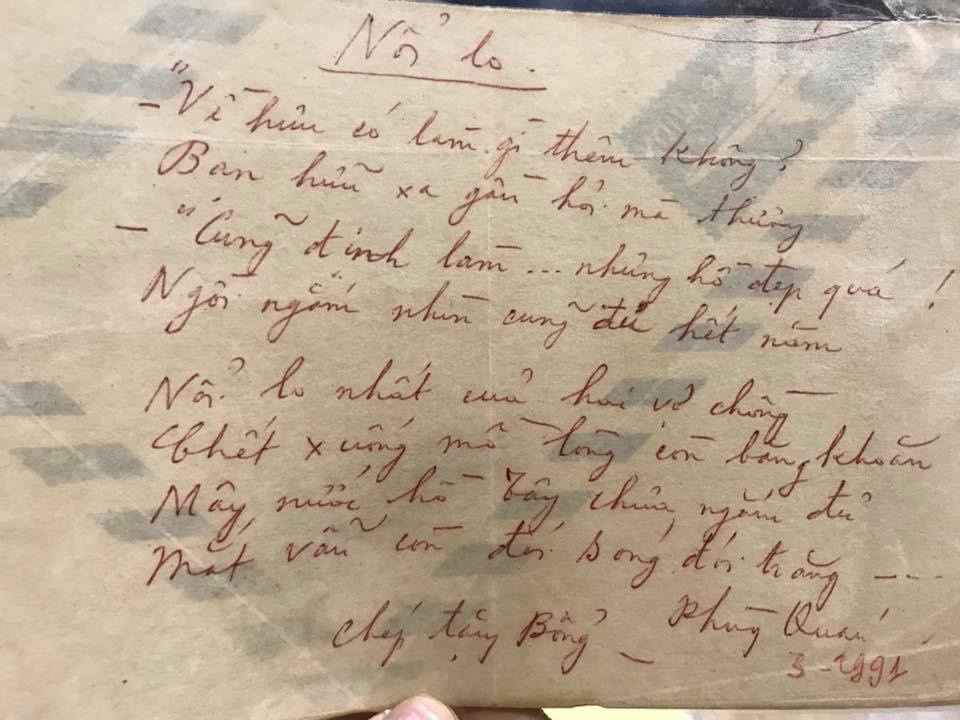 Nỗi lo.
- "Về hưu có làm gì thêm không?
Bạn hữu xa gần hỏi mà thương
- "Cũng định làm... nhưng hồ đẹp quá!
Ngồi ngắm nhìn cũng đủ hết năm
Nỗi lo nhất của hai vợ chồng
Chết xuống mồ lòng còn băng khoăn
Mây nước hồ Tây chưa ngắm đủ
Mắt vẫn còn đói sóng đói trăng ----
Chép tặng Bổng - Phùng Quán
3-1991